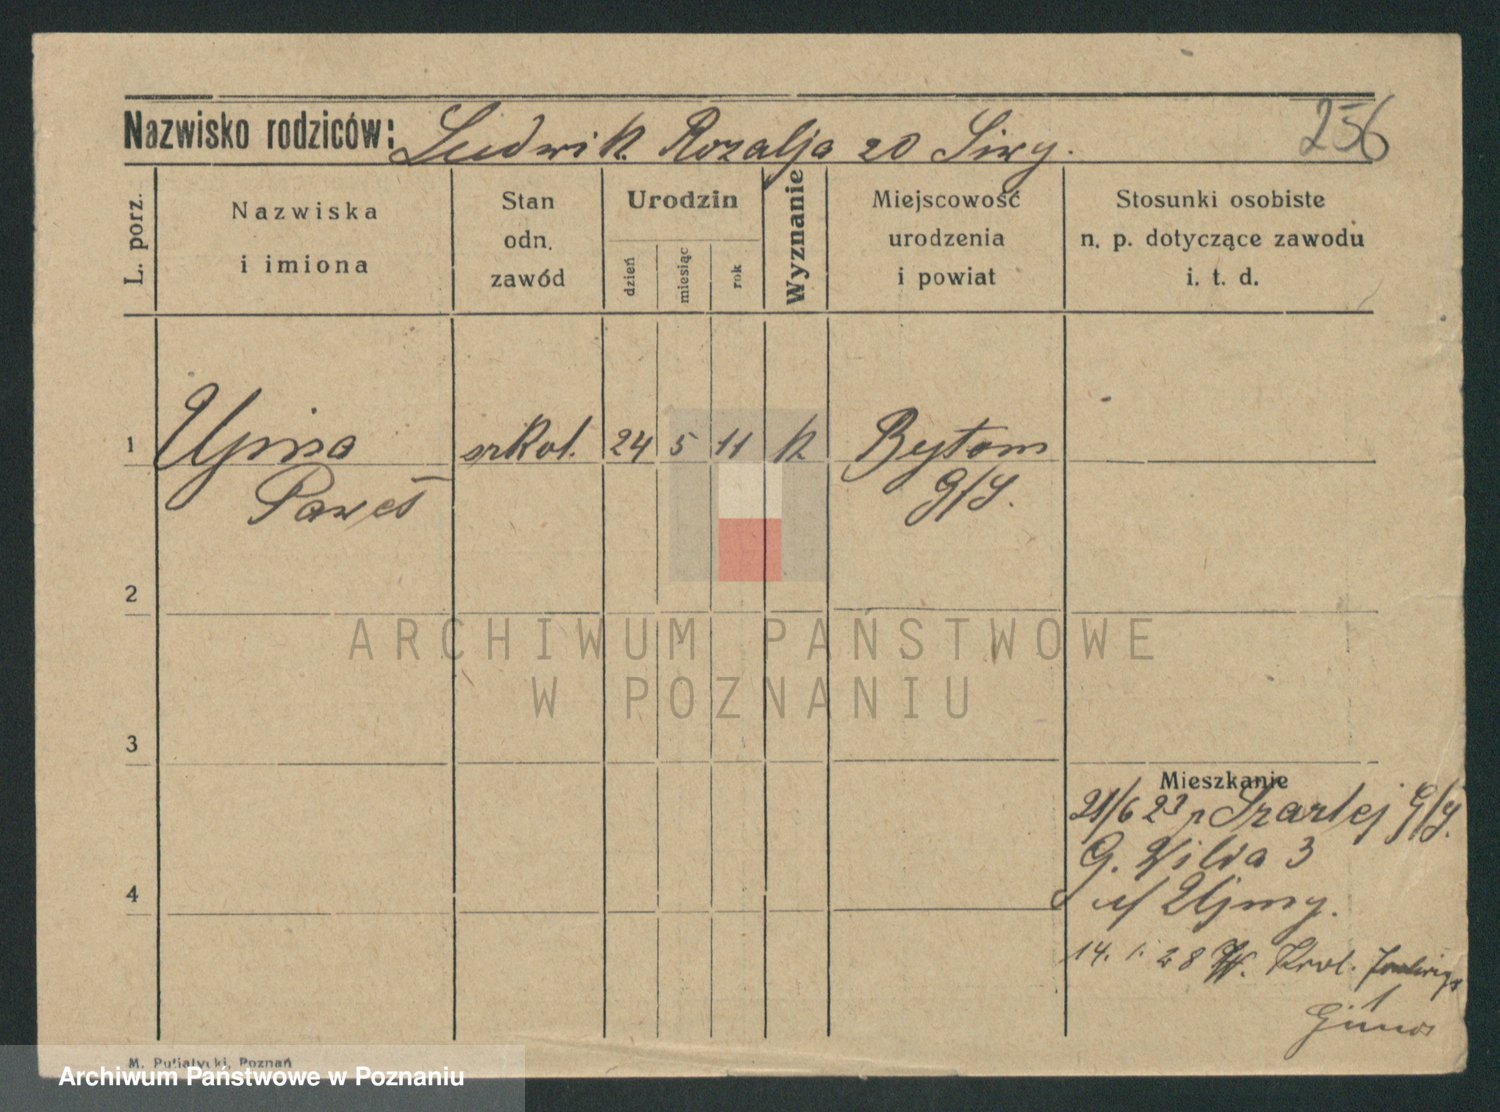 256
Nazwisko rodziców: Ludwik Rozalja zd Siwy.
L. porz.
Nazwiska i imiona
Stan odn. zawód
Urodzin
dzień
miesiąc
rok
Wyznanie
Miejscowość urodzenia i powiat
Stosunki osobiste n. p. dotyczące zawodu i. t. d.
1 Ujma szkol. 24 5 11 k Bytom
Paweł G/S.
2
ARCHIWUM PAŃSTWOWE
W POZNANIU
3
Mieszkanie
21/6 23 Szarlej G/S.
G. Wilda 3
u/ Ujmy.
4
14. 1. 28 Król.
M. Putiatycki, Poznań
Archiwum Państwowe w Poznaniu